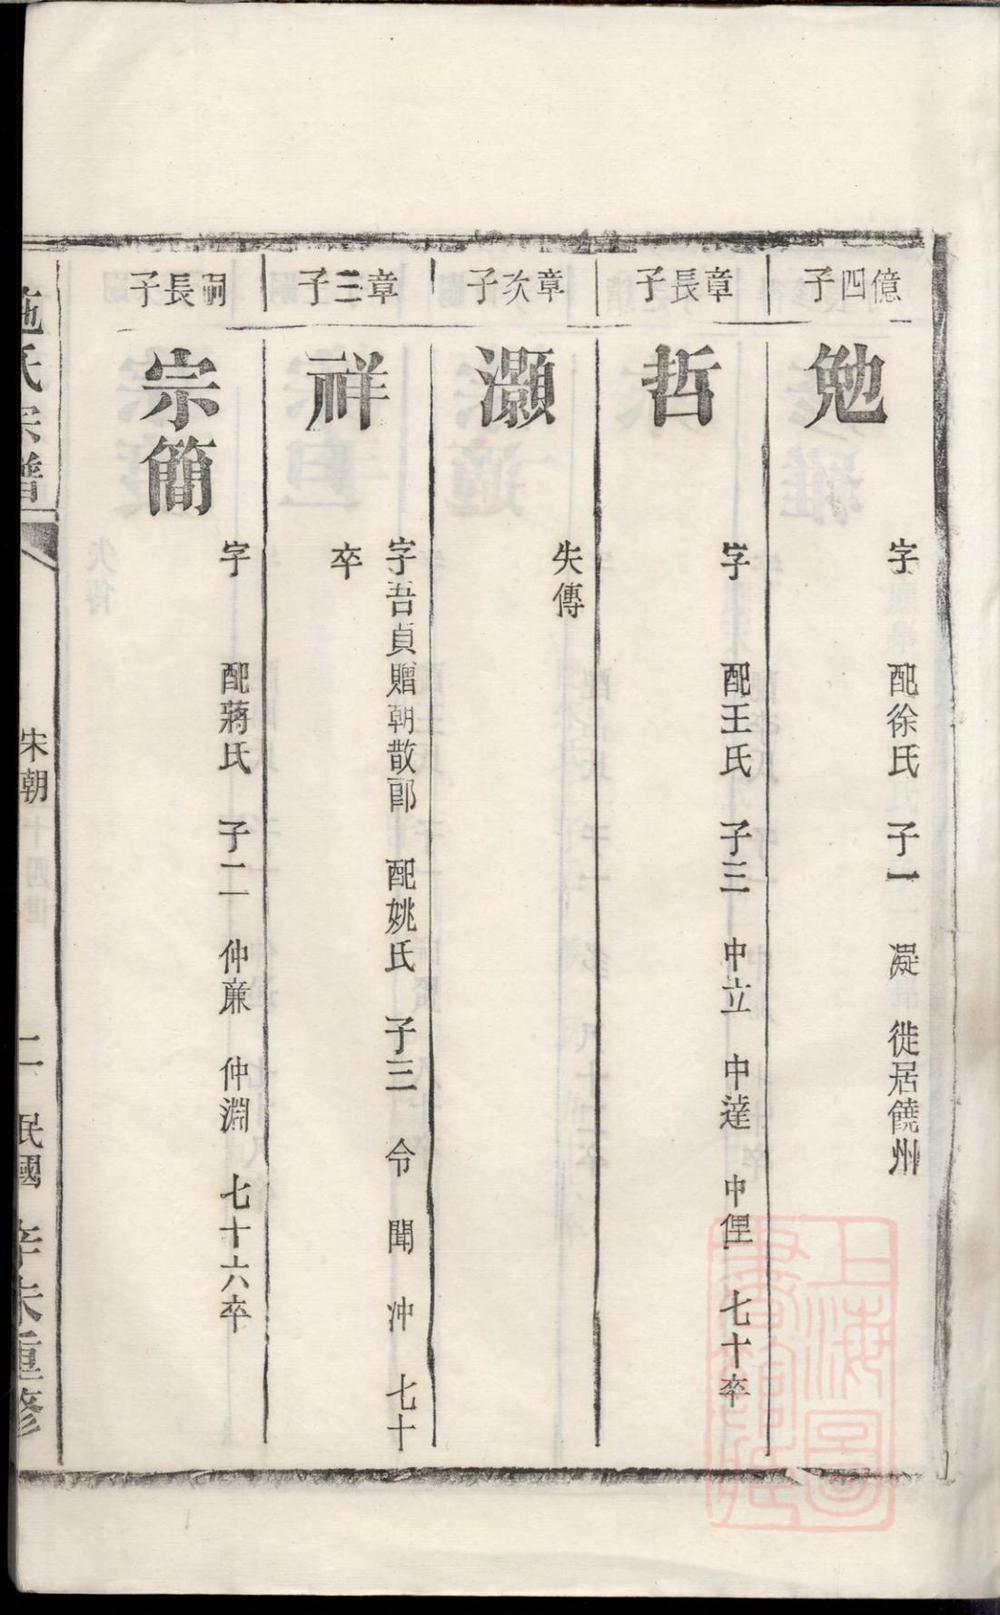 億四子
勉
字 配徐氏 子一 凝 徙居饒州
章長子
哲
字 配王氏 子三 中立 中達 中俚 七十卒
章次子
灝
失傳
章三子
祥
字吾貞贈朝散郎 配姚氏 子三 令 聞 沖 七十
卒
嗣長子
宗簡
字 配蔣氏 子二 仲亷 仲淵 七十六卒
施氏宗譜
宋朝
二 民國 辛未重修
上海圖
書館藏